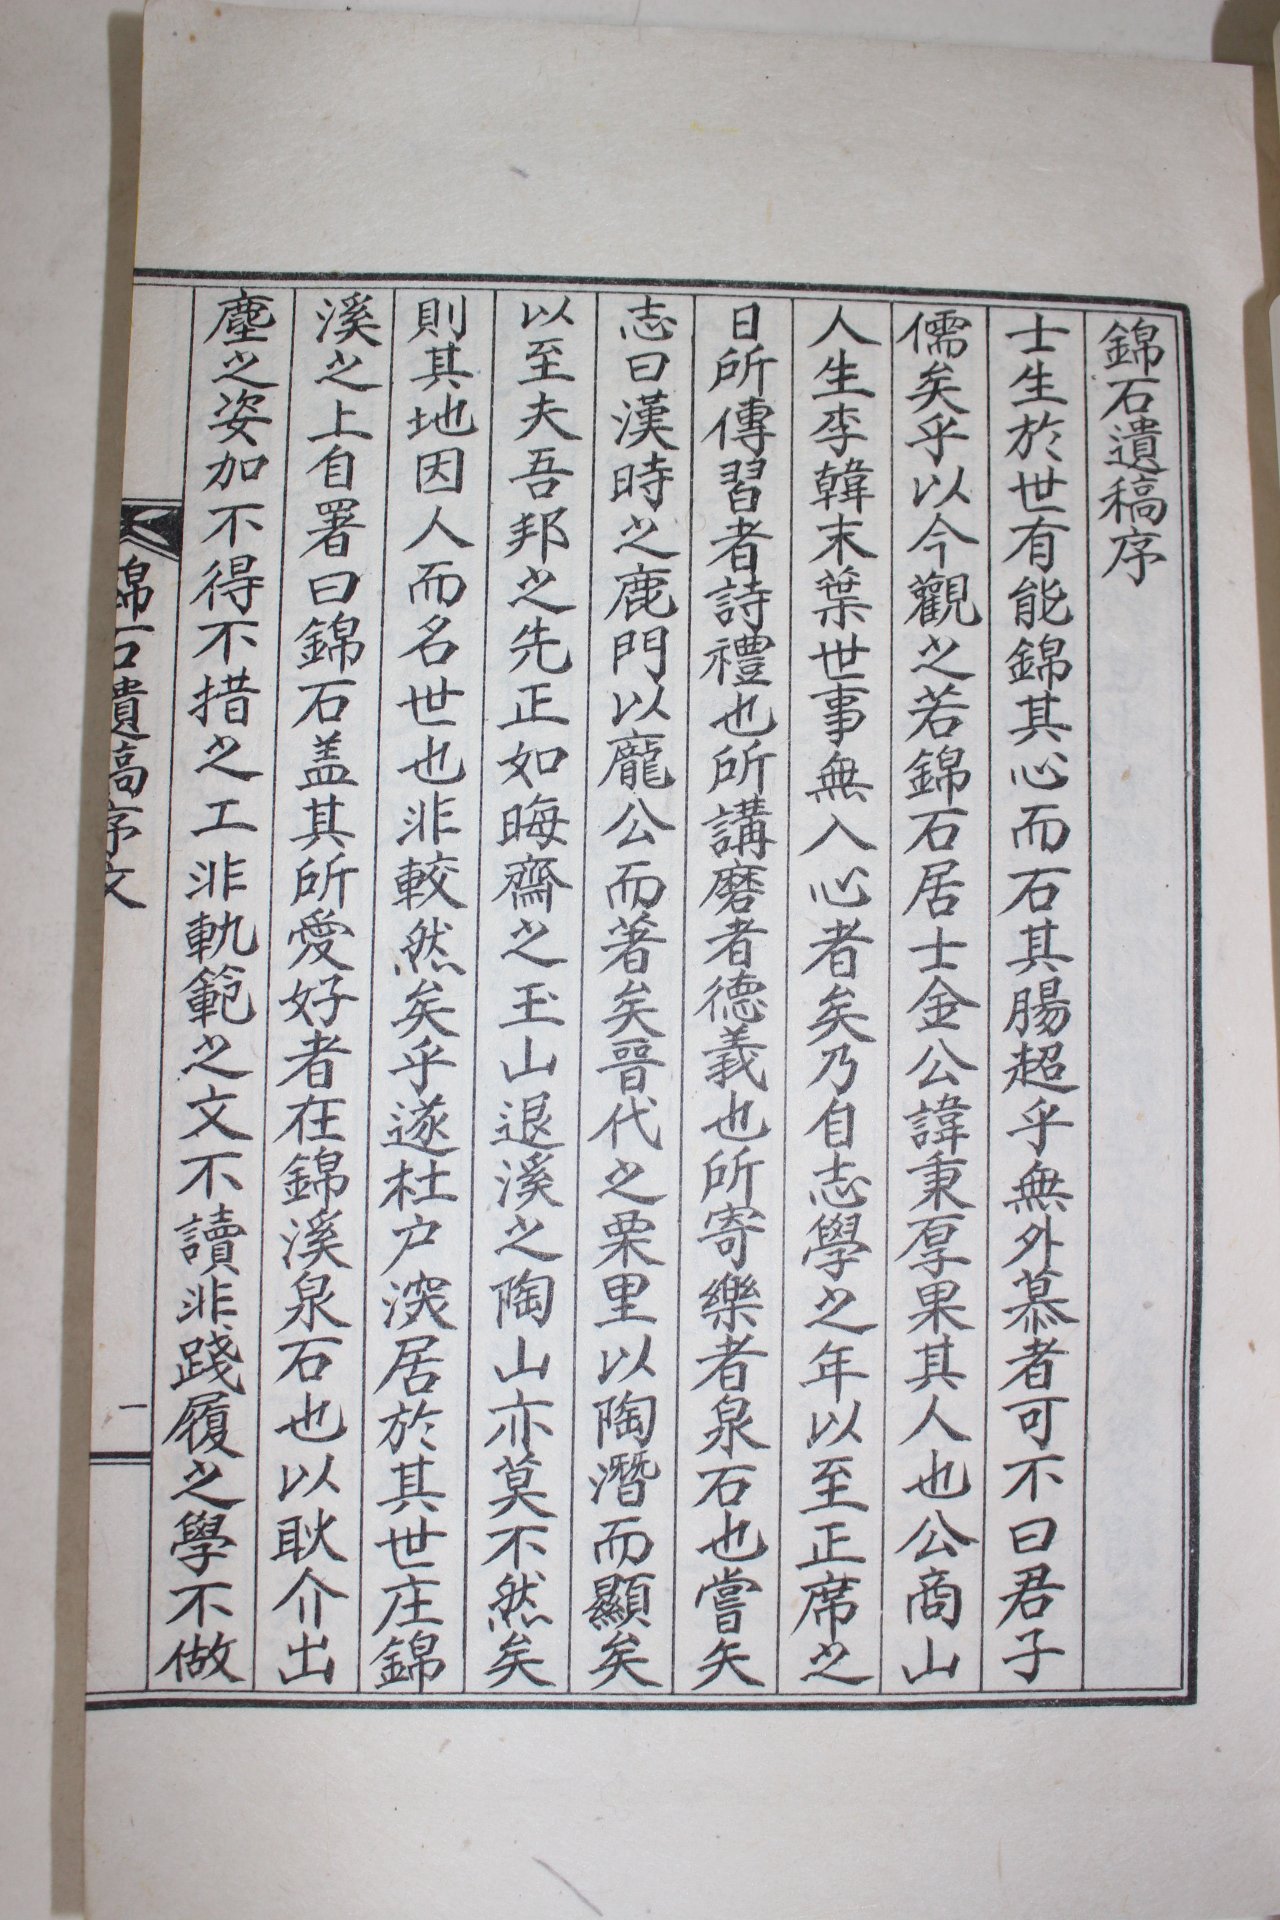 錦石遺稿序
士生於世有能錦其心而石其腸超乎無外慕者可不曰君子
儒矣乎以今觀之若錦石居士金公諱秉厚果其人也公商山
人生李韓末葉世事無入心者矣乃自志學之年以至正席之
日所傳習者詩禮也所講磨者德義也所寄樂者泉石也嘗矢
志曰漢時之鹿門以龐公而著矣晉代之栗里以陶潛而顯矣
以至夫吾邦之先正如晦齋之玉山退溪之陶山亦莫不然矣
則其地因人而名世也非較然矣乎遂杜户深居於其世庄錦
溪之上自署曰錦石盖其所愛好者在錦溪泉石也以耿介出
塵之姿加不得不措之工非軌範之文不讀非踐履之學不做
錦石遺稿序文
一